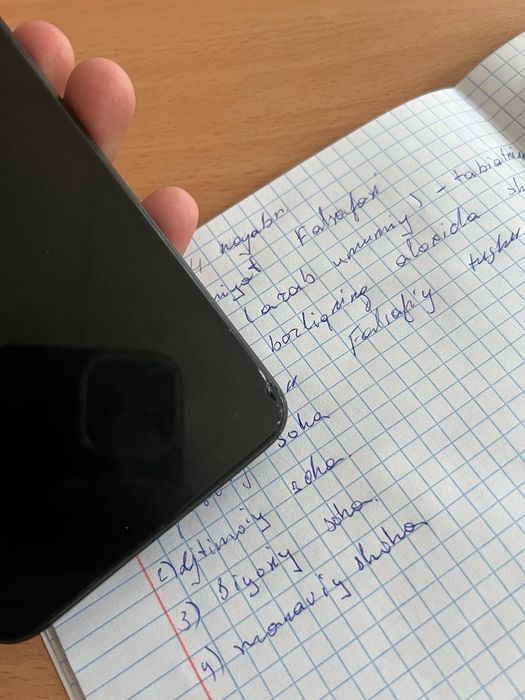 4 noyabr
Falsafasi
(arab umumiy) - tabiatni
borliqning aloxida
Falsafiy tushu
soha
2) Ijtimoiy soha.
3) Siyosiy soha.
4) manaviy shoha